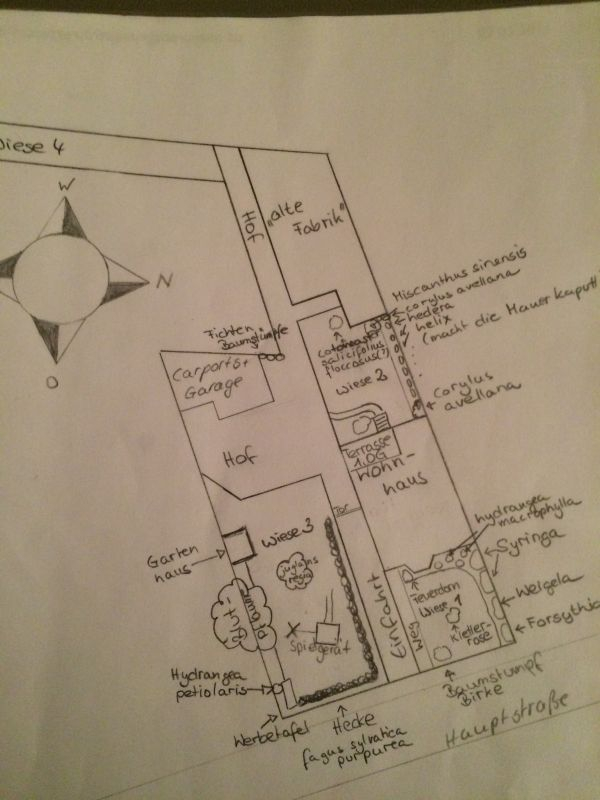 Wiese 4
W
N
O
Hof
"alte
Fabrik"
Miscanthus sinensis
corylus avellana
hedera
helix
(macht die Mauer kaputt
Fichten
Baumstümpfe
Cotoneaster
salicifolius
floccosus(?)
Wiese 2
Carports+
Garage
Corylus
avellana
Terrasse
1.OG
Wohn-
haus
Hof
Tor
hydrangea
macrophylla
Syringa
Weigela
Forsythia
Wiese 3
juglans
regia
Garten
haus
Blut-
pflaume
Spielgerät
Einfahrt
Weg
Feuerdorn
Wiese 1
Kletter-
rose
Hydrangea
petiolaris
Werbetafel
Hecke
fagus sylvatica
purpurea
Baumstumpf
Birke
Hauptstraße